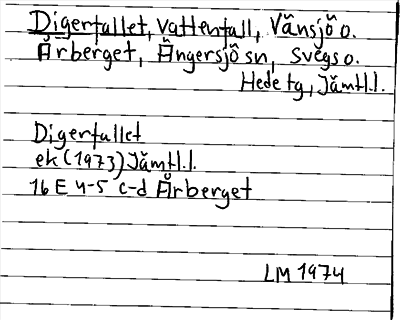 Digerfallet, vattenfall, Vänsjö o.
Årberget, Ängersjö sn, Svegs o.
Hede tg, Jämtl.l.
Digerfallet
ek (1973) Jämtl.l.
16 E 4-5 c-d Årberget
LM 1974